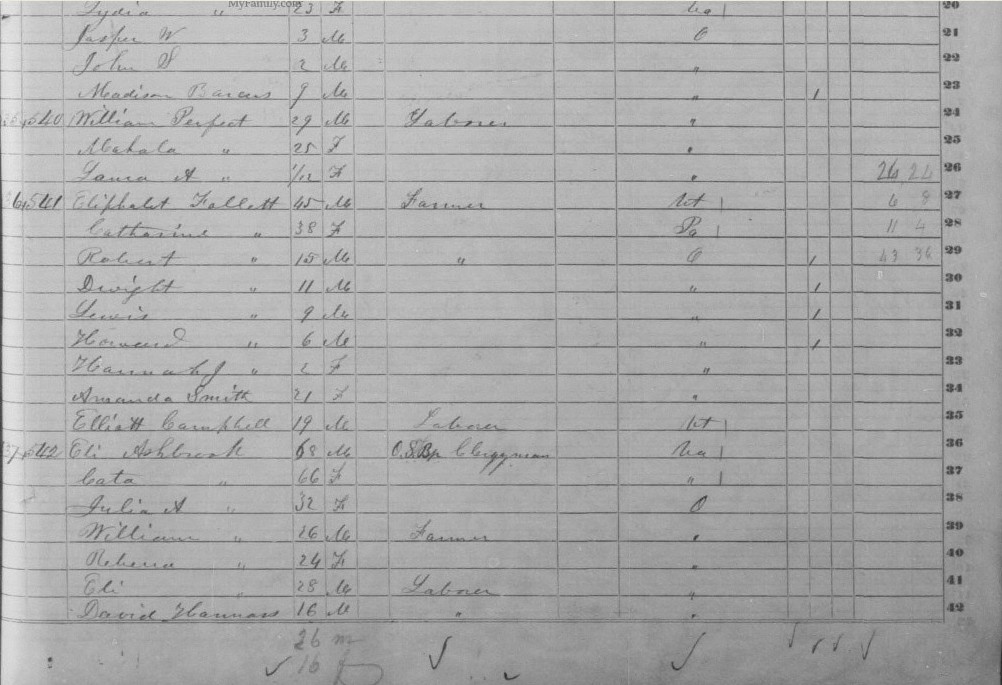 MyFamily.com
Lydia " 23 F Va 20
Jasper W 3 M O 21
John S 2 M " 22
Madison Barcus 9 M " 1 23
540 William Perfect 29 M Laborer " 24
Mahala " 25 F " 25
Laura A " 1/12 F " 26 24 26
541 Eliphalet Follett 45 M Farmer Vt 1 6 8 27
Catharine " 38 F Pa 1 11 4 28
Robert " 15 M " O 1 43 36 29
Dwight " 11 M " 1 30
Lewis " 9 M " 1 31
Howard " 6 M " 1 32
Hannah J " 2 F " 33
Amanda Smith 21 F " 34
Elliott Campbell 19 M Laborer Vt 1 35
542 Eli Ashbrook 68 M O.S.Bp Clergyman Va 1 36
Cata " 66 F " 1 37
Julia A " 32 F O 38
William " 26 M Farmer " 39
Rebecca " 24 F " 40
Eli " 28 M Laborer " 41
David 16 M " " 42
26 m
16 f